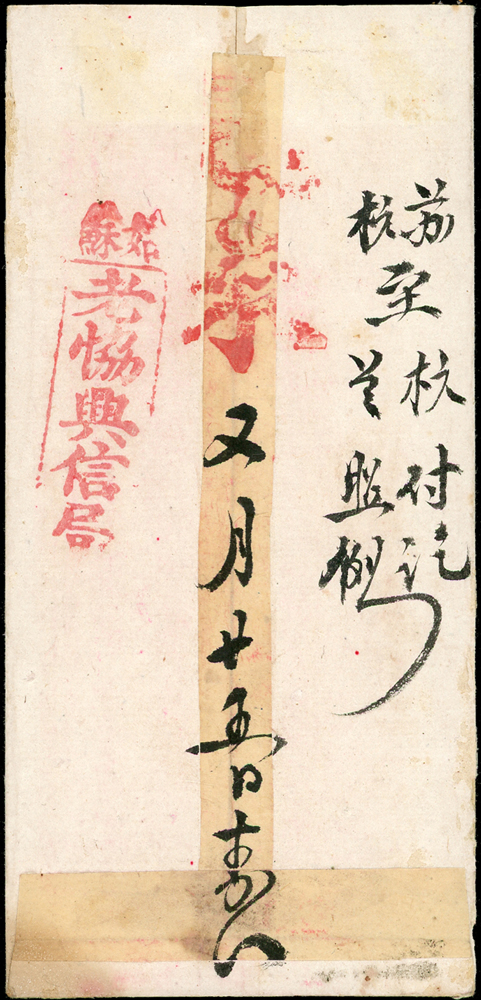 苏至杭付讫
杭至兰照例
又月廿五日
姑蘇
老協興信局